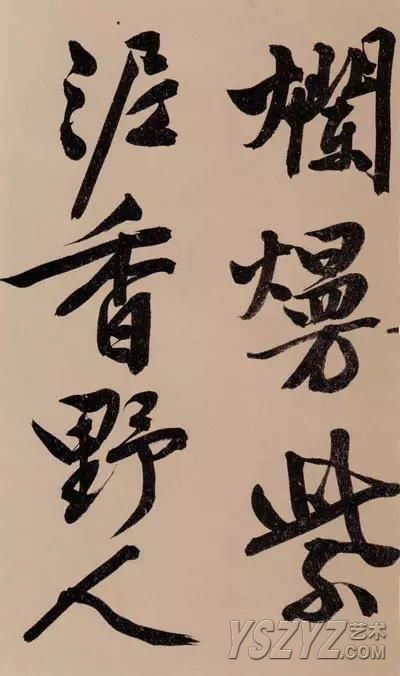 爛熳紫
泥香野人
YSZYZ艺术
.COM